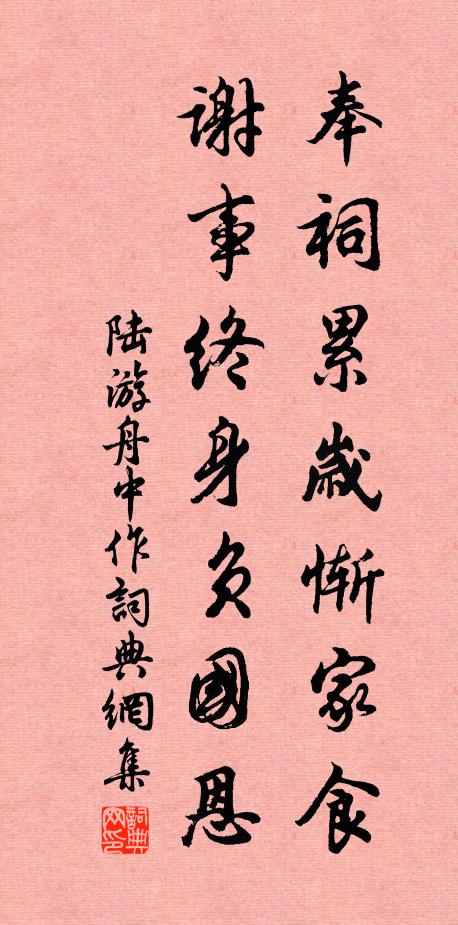 奉祠累歲慚家食
謝事終身負國恩
陸游舟中作詞典網集
詞典网印